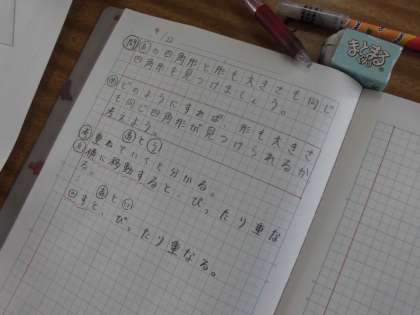 問 あの四角形と形も大きさも同じ
四角形を見つけましょう。
めどのようにすれば、形も大きさ
も同じ四角形が見つけられるか
考えよう。
あとう
重ねていくと分かる。
横に移動すると、ぴったり重な
る。
あと
すと、ぴったり重なる。
まとまるくん